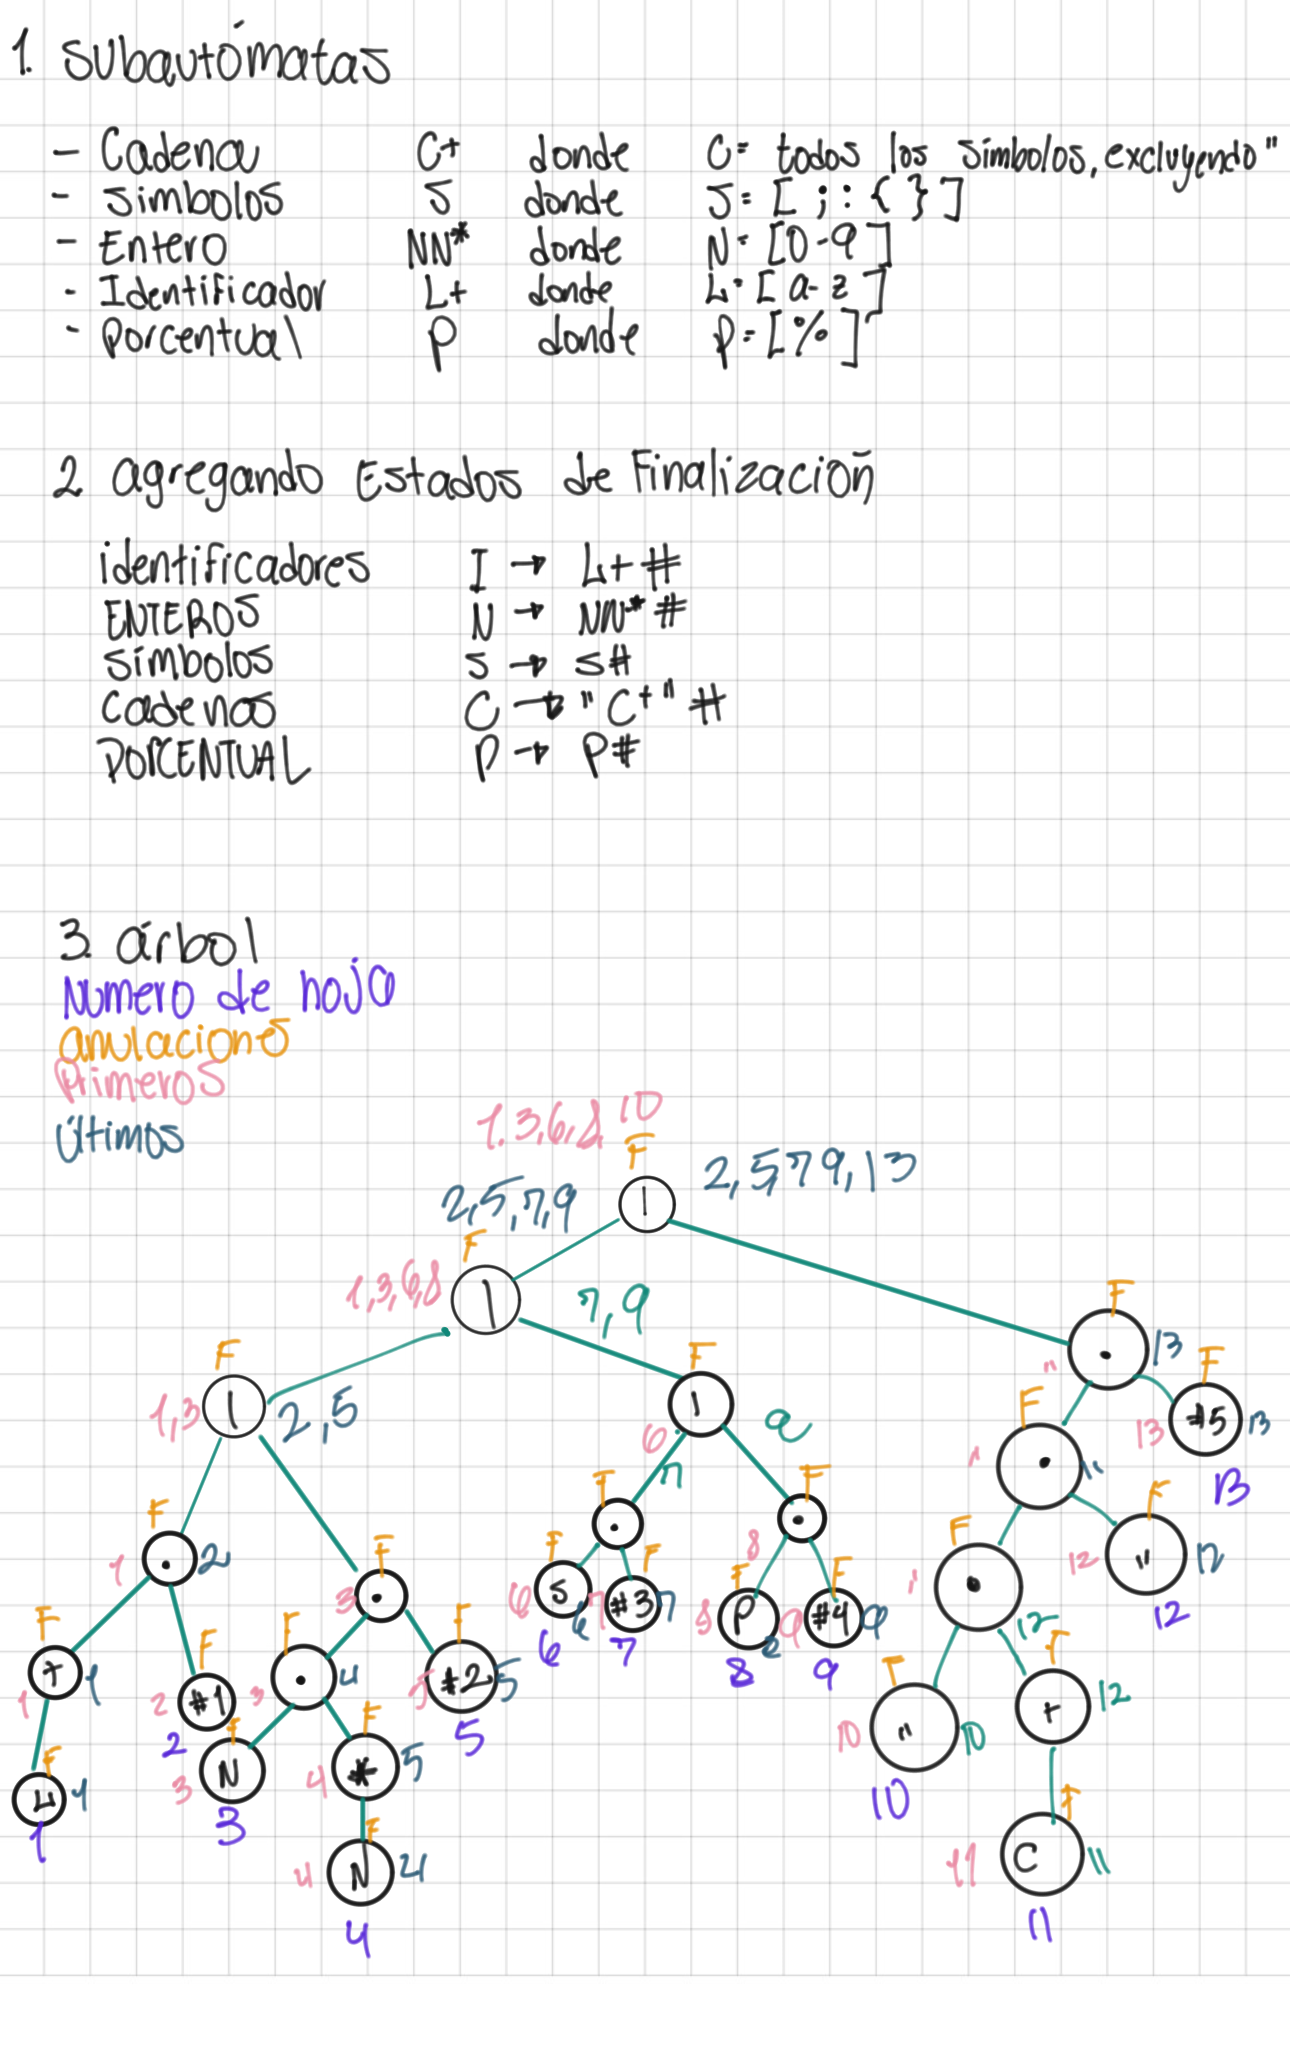 1. Subautómatas
- Cadena C+ donde C= todos los simbolos, excluyendo "
- simbolos S donde S= [ ; : { } ]
- Entero NN* donde N= [0-9]
- Identificador L+ donde L= [a-z]
- Porcentual P donde P= [%]
2 agregando Estados de Finalización
identificadores I → L+#
ENTEROS N → NN*#
simbolos S → S#
cadenas C → "C+"#
PORCENTUAL P → P#
3. árbol
Numero de hoja
anulaciones
Primeros
Últimos
1.3,6,8,10
F
2,5,7,9 | 2,5,79,13
F
1,3,6,8 | 7,9 F
F F . 13 F
1,3 | 2,5 | a F #5 13
6 13
n F . 13
F F F F
1 . 2 . . " 12
F 3 . 8 12 12
F F F F F F
+ 1 . 4 #2 5 S #3 7 P #4 9
1 2 #1 3 5 6 7 8 9 + 12
2 F F 5 6 7 8 9 10 " 10
F N * 5 10
L 1 3 4 F F
1 3 4 N 4 11 C 11
4 11